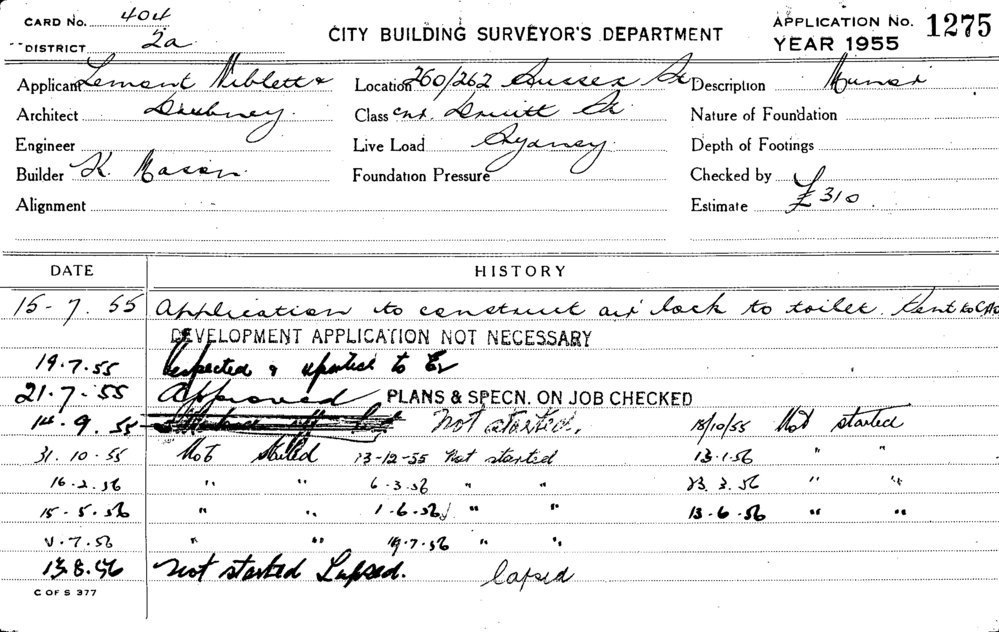 CARD No. 404
DISTRICT 2a
CITY BUILDING SURVEYOR'S DEPARTMENT
APPLICATION No. 1275
YEAR 1955
Applicant Lemont Niblett &
Location 260/262 Sussex St
Description Minor
Architect Deubney.
Class cnr. Druitt St
Nature of Foundation
Engineer
Live Load Sydney
Depth of Footings
Builder K. Mason.
Foundation Pressure
Checked by
Alignment
Estimate £310.
DATE HISTORY
15-7.55 Application to construct air lock to toilet.
DEVELOPMENT APPLICATION NOT NECESSARY
19.7.55 Inspected & reported to
21.7.55 Approved PLANS & SPECN. ON JOB CHECKED
14.9.55 Not started. 18/10/55 Not started
31.10.55 Not started 13-12-55 Not started 13.1.56 " "
16.2.56 " " 6.3.56 " " 23.3.56 " "
15.5.56 " " 1.6.56 " " 13.6.56 " "
.7.56 " " 19.7.56 " "
13.8.56 Not started Lapsed. lapsed
C OF S 377